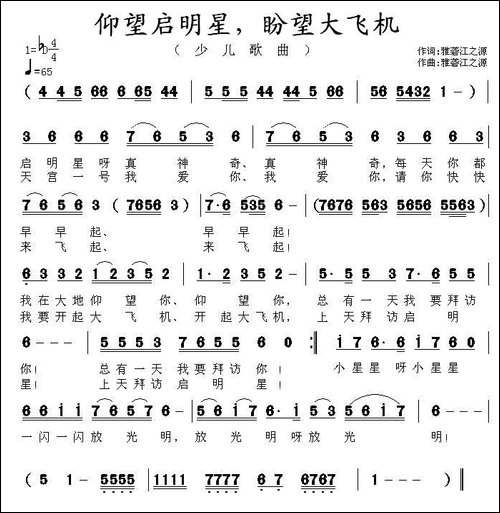 仰望启明星，盼望大飞机
（少儿歌曲）
作词:雅砻江之源
作曲:雅砻江之源
1=♭D 4/4
♩=65
（4 4 5 66 6 65 44 | 5 5 5 44 5 5 44 | 56 56 5432 1 -）|
3 6 6 6 7 6 5 3 | 6 6 6 6 7 6 5 3
启 明 星 呀 真 神 奇、真 神 奇，每 天 你 都
天 宫 一 号 我 爱 你、我 爱 你，请 你 快 快
7 6 5 3（7656 3）| 7·6 535 6 - |（7676 563 565656 5563）|
早 早 起、 早 早 起！
来 飞 起、 来 飞 起！
6 3 3 2 1 2 3 5 2 | 1· 2 3 2 - | 5· 5 5 3 2 3 5 5
我 在 大 地 仰 望 你、仰 望 你， 总 有 一 天 我 要 拜 访
我 要 开 起 大 飞 机、开 起 大 飞 机， 上 天 拜 访 启 明
6 - - - | 5 5 5 3 7 6 5 7 6 0 :|| 6 6 i 7 6 5 3
你！ 总 有 一 天 我 要 拜 访 你！ 小 星 星 呀 小 星 星
星！ 上 天 拜 访 启 明 星！
6 6 i i 7 6 5 7 6 - | 5 6 i 7 6· i | 3 5 6 i 7 6 - - -
一 闪 一 闪 放 光 明，放 光 明 呀 放 光 明！
（5 1 - 5555 | 1111 7777 6 7 6767 | 1 - - -）||